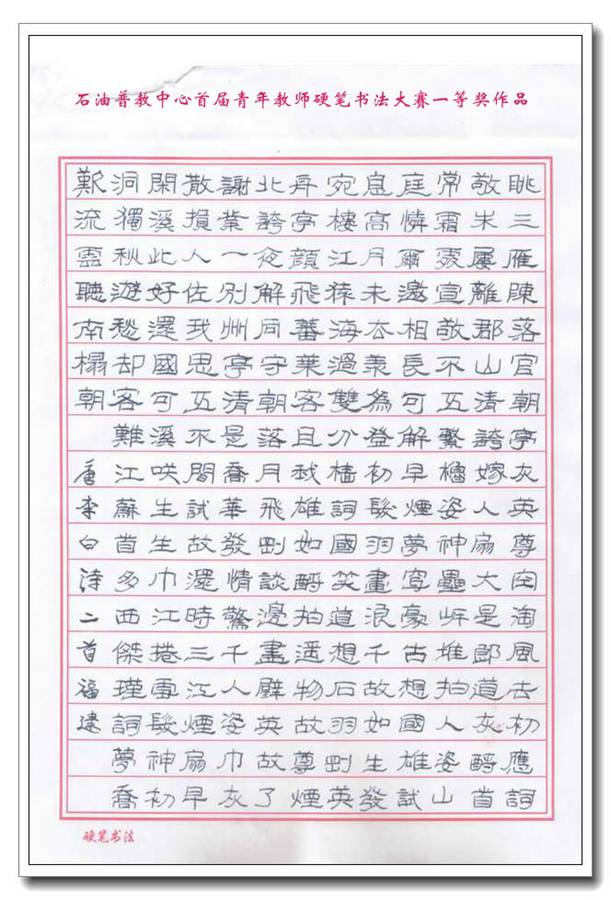 石油普教中心首届青年教师硬笔书法大赛一等奖作品
眺三雁陳落官朝亭灰英尊淘風去初應詞
敬屢離郡山清誇嫁人扇大是郎道灰酹首
常霜宣敬不五繫檣姿神壘堆拍人姿山
庭憐爾邀相長可解早煙夢豪古想國雄試
高月未為登初髮羽畫浪千故如生發
宛樓江猿海過雙分檣詞國笑道想石羽剛英
丹亭顏飛蕃葉客且雄如酹拍遥物故尊煙
北誇夜解同守朝落月飛剛談邊畫壁英故了
謝業一別州亭清是喬華發情驚千人姿巾灰
散損人佐我思五不間試故還時三江煙扇早
閑溪此好還國可溪笑生生巾江捲雪髮神初
洞獨秋遊愁却客難江蘇首多西傑瑾詞夢喬
歎流雲聽南榻朝
唐李白詩二首福建
硬笔书法